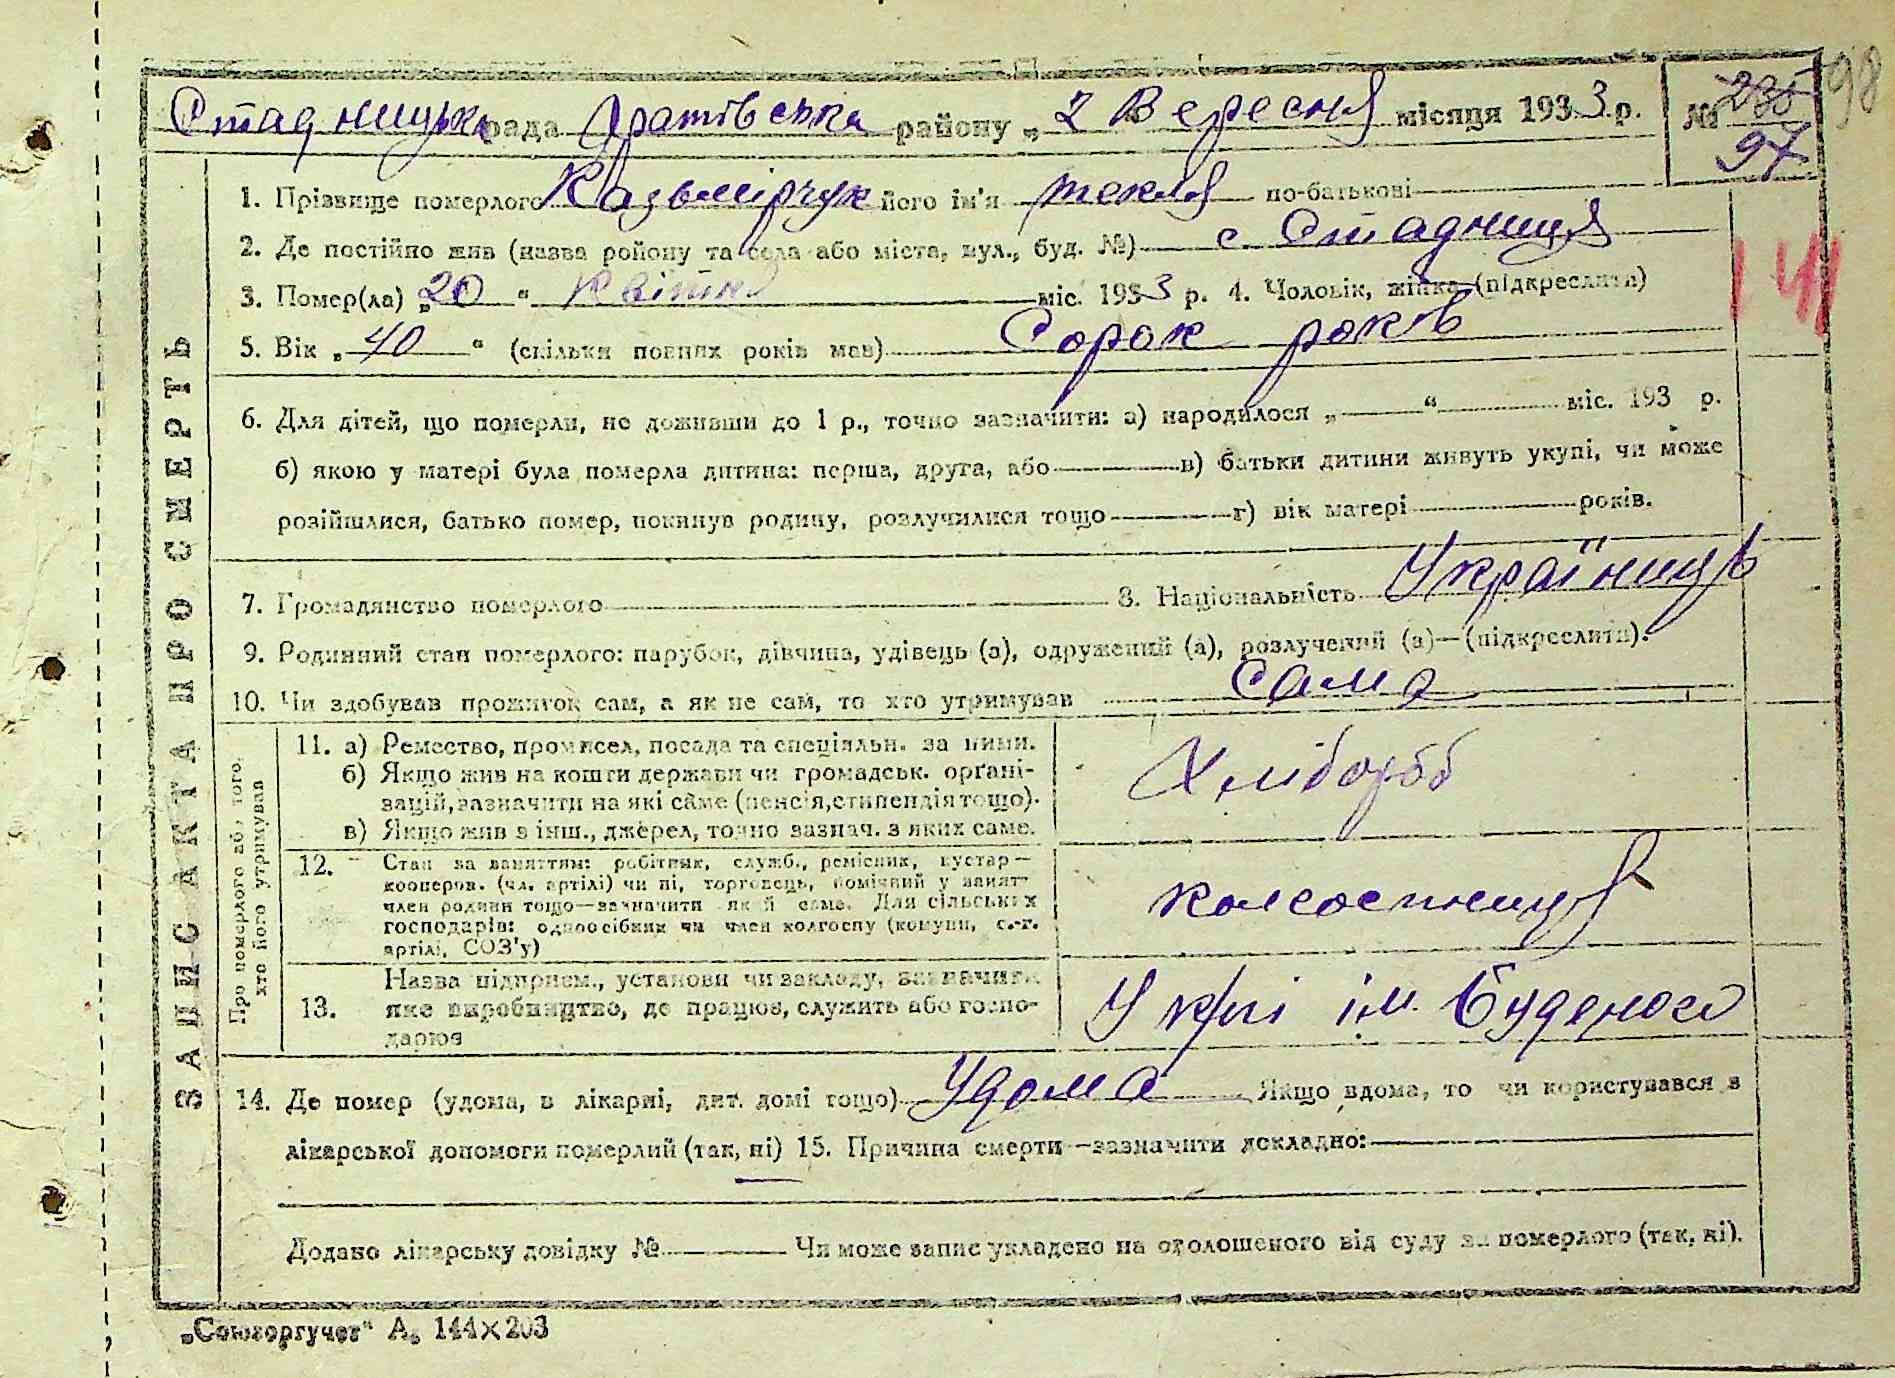 98
Стадницька рада Оратівська району „ 2 Вересня місяця 1933 р. № 235
97
1. Прізвище померлого Казьмірчук його ім'я текля по-батькові
2. Де постійно жив (назва району та села або міста, вул., буд. №) с. Стадниця
3. Помер(ла) „20 “ Квітня міс. 1933 р. 4. Чоловік, жінка (підкреслити)
141
5. Вік „ 40 “ (скільки повних років мав) Сорок років
6. Для дітей, що померли, не доживши до 1 р., точно зазначити: а) народилося „ “ міс. 193 р.
б) якою у матері була померла дитина: перша, друга, або в) батьки дитини живуть укупі, чи може
розійшлися, батько помер, покинув родину, розлучилися тощо г) вік матері років.
7. Громадянство померлого 8. Національність Україниць
9. Родинний стан померлого: парубок, дівчина, удівець (а), одружений (а), розлучений (а)—(підкреслити).
10. Чи здобував прожиток сам, а як не сам, то хто утримував сама
ЗАПИС АКТА ПРО СМЕРТЬ
Про померлого або того,
хто його утримував
11. а) Ремество, промисел, посада та спеціяльн. за ними.
б) Якщо жив на кошти держави чи громадськ. орґані-
зацій, зазначити на які саме (пенсія, стипендія тощо).
в) Якщо жив з інш., джерел, точно зазнач. з яких саме.
Хлібороб
12. Стан за заняттям: робітник, служб., ремісник, кустар—
кооперов. (чл. артілі) чи ні, торговець, помічний у занятт
член родини тощо—зазначити як й саме. Для сільських
господарів: одноосібник чи член колгоспу (комуни, с.-г.
артілі, СОЗ'у)
колгоспниця
13. Назва підприєм., установи чи закладу, зазначити
яке виробництво, де працює, служить або госпо-
дарює
У к/гпі ім. Буденого
14. Де помер (удома, в лікарні, дит. домі тощо) Удома Якщо вдома, то чи користувався з
лікарської допомоги померлий (так, ні) 15. Причина смерти—зазначити докладно:
Додано лікарську довідку № Чи може запис укладено на оголошеного від суду за померлого (так, ні).
„Союзоргучет“ А₆ 144×203